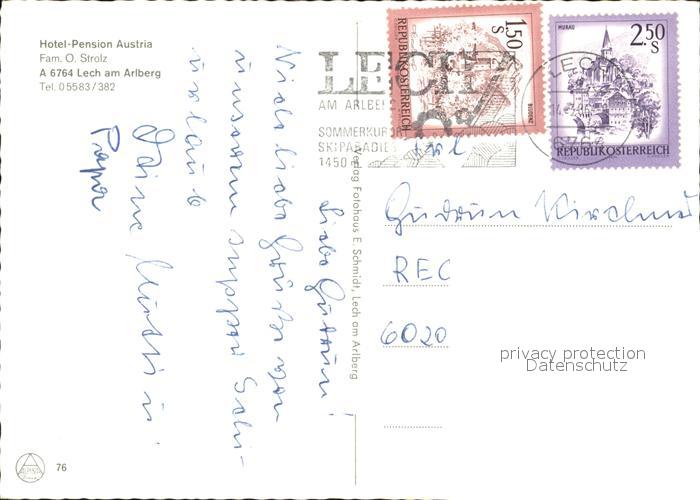 Hotel-Pension Austria
Fam. O. Strolz
A 6764 Lech am Arlberg
Tel. 05583/382
LECH
AM ARLBE
SOMMERKURORT
SKIPARADIES
1450
1.50 S
REPUBLIK ÖSTERREICH
MURAU
2.50 S
REPUBLIK ÖSTERREICH
LECH
6764
Liebe Gudrun!
Viele liebe Grüße von
unserem Schi-
urlaub
Deine Mutti u.
Papa
Verlag Fotohaus E. Schmidt, Lech am Arlberg
Frl
Gudrun
REC
6020
privacy protection
Datenschutz
ALPINA
76